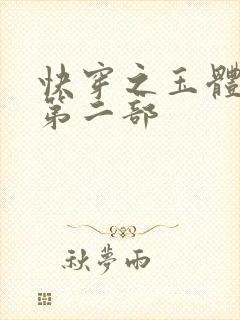 快穿之玉體
第二部
秋夢雨